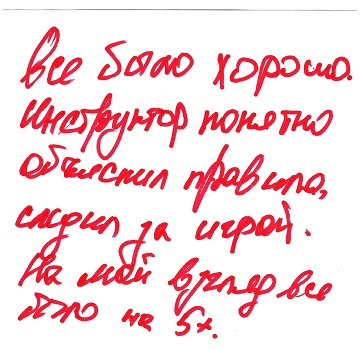 Все было хорошо.
Инструктор понятно
объяснил правила,
следил за игрой.
На мой взгляд все
было на 5+.